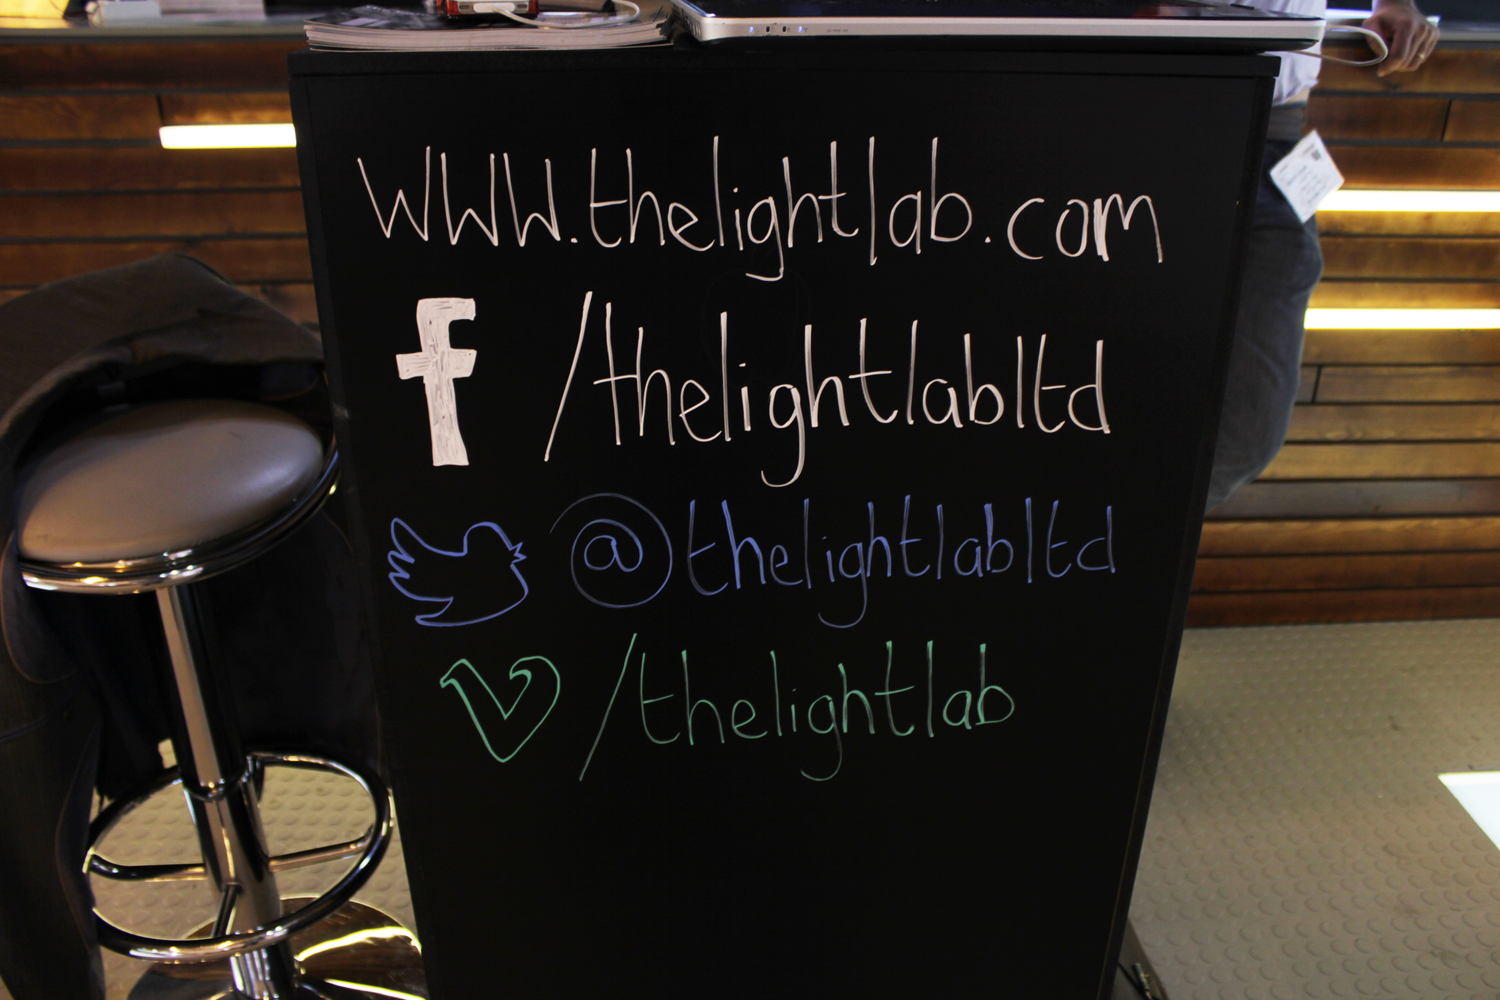 www.thelightlab.com
f /thelightlabltd
@thelightlabltd
v /thelightlab